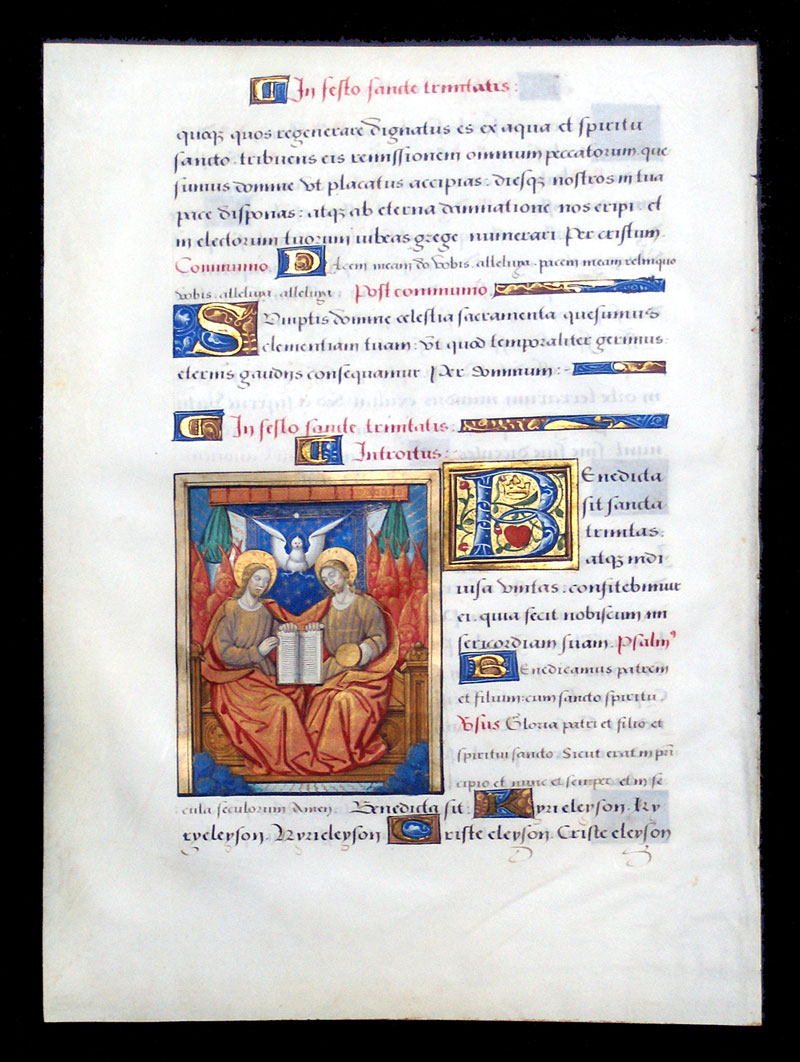 In festo sancte trinitatis:
quoqz quos regenerare dignatus es ex aqua et spiritu
sancto. tribuens eis remissionem omnium peccatorum. que
sumus domine vt placatus accipias: diesqz nostros in tua
pace disponas: atqz ab eterna damnatione nos eripi. et
in electorum tuorum iubeas grege numerari. Per cristum.
Communio. Pacem meam do vobis. alleluya. pacem meam relinquo
vobis. alleluya. alleluya. Post communio.
Sumptis domine celestia sacramenta quesumus
clementiam tuam: vt quod temporaliter gerimus
eternis gaudijs consequamur. Per dominum:-
In festo sancte trinitatis:
Introitus:
Benedicta
sit sancta
trinitas.
atqz indi
uisa vnitas: confitebimur
ei. quia fecit nobiscum mi
sericordiam suam. Psalm9
Benedicamus patrem
et filium: cum sancto spiritu.
Vsus Gloria patri et filio et
spiritui sancto. Sicut erat in pri
cipio et nunc et semper. et in se
cula seculorum Amen. Benedicta sit: Kyrieleyson. Ky
ryeleyson. Kyrieleyson Criste eleyson. Criste eleyson